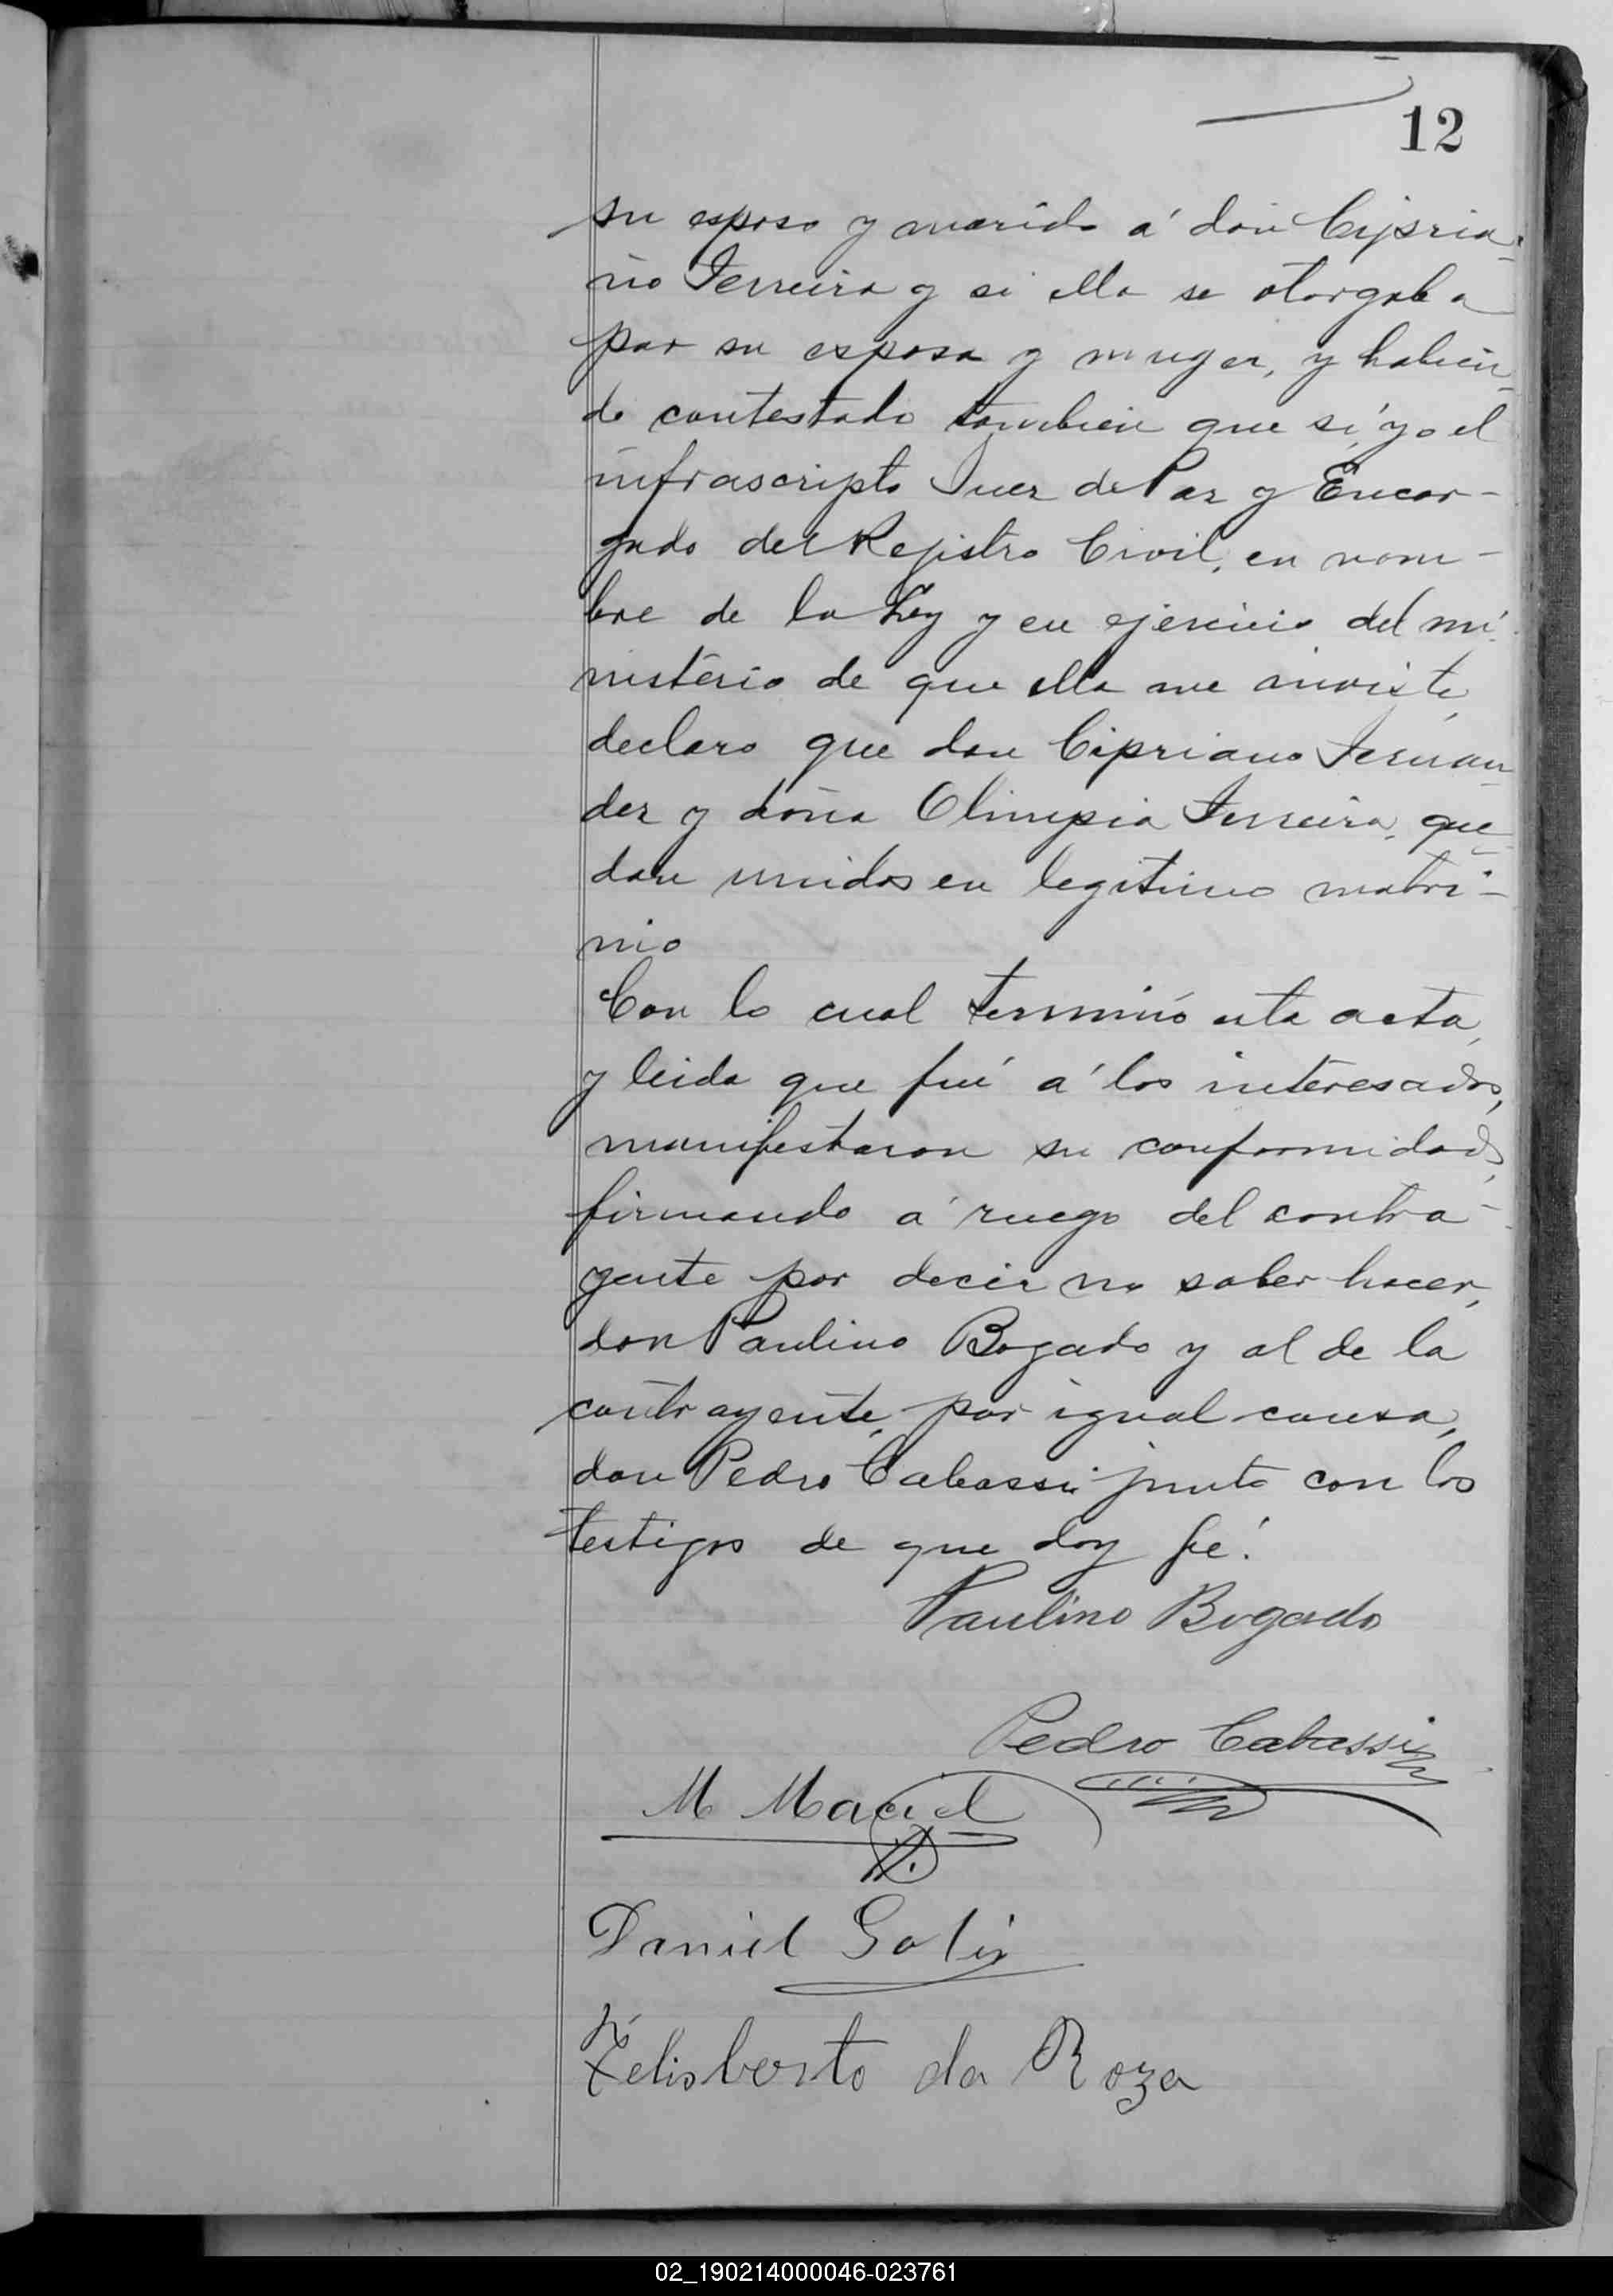 12
su esposo y marido á don Cipria-
no Ferreira y si ella se otorgaba
por su esposa y muger, y habien-
do contestado tambien que sí, yo el
infrascripto Juez de Paz y Encar-
gado del Rejistro Civil, en nom-
bre de la Ley y en ejercicio del mi-
nisterio de que ella me inviste,
declaro que don Cipriano Fernan-
dez y doña Olimpia Ferreira, que-
dan unidos en legitimo matri-
nio
Con lo cual terminó esta acta,
y leida que fué á los interesados,
manifestaron su conformidad,
firmando á ruego del contra-
yente por decir no saber hacer,
don Paulino Bogado y al de la
contrayente, por igual causa,
don Pedro Cabassi junto con los
testigos de que doy fé.
Paulino Bogado
Pedro Cabassi
M Maciel
Daniel Solis
Felisberto da Roza
02_190214000046-023761